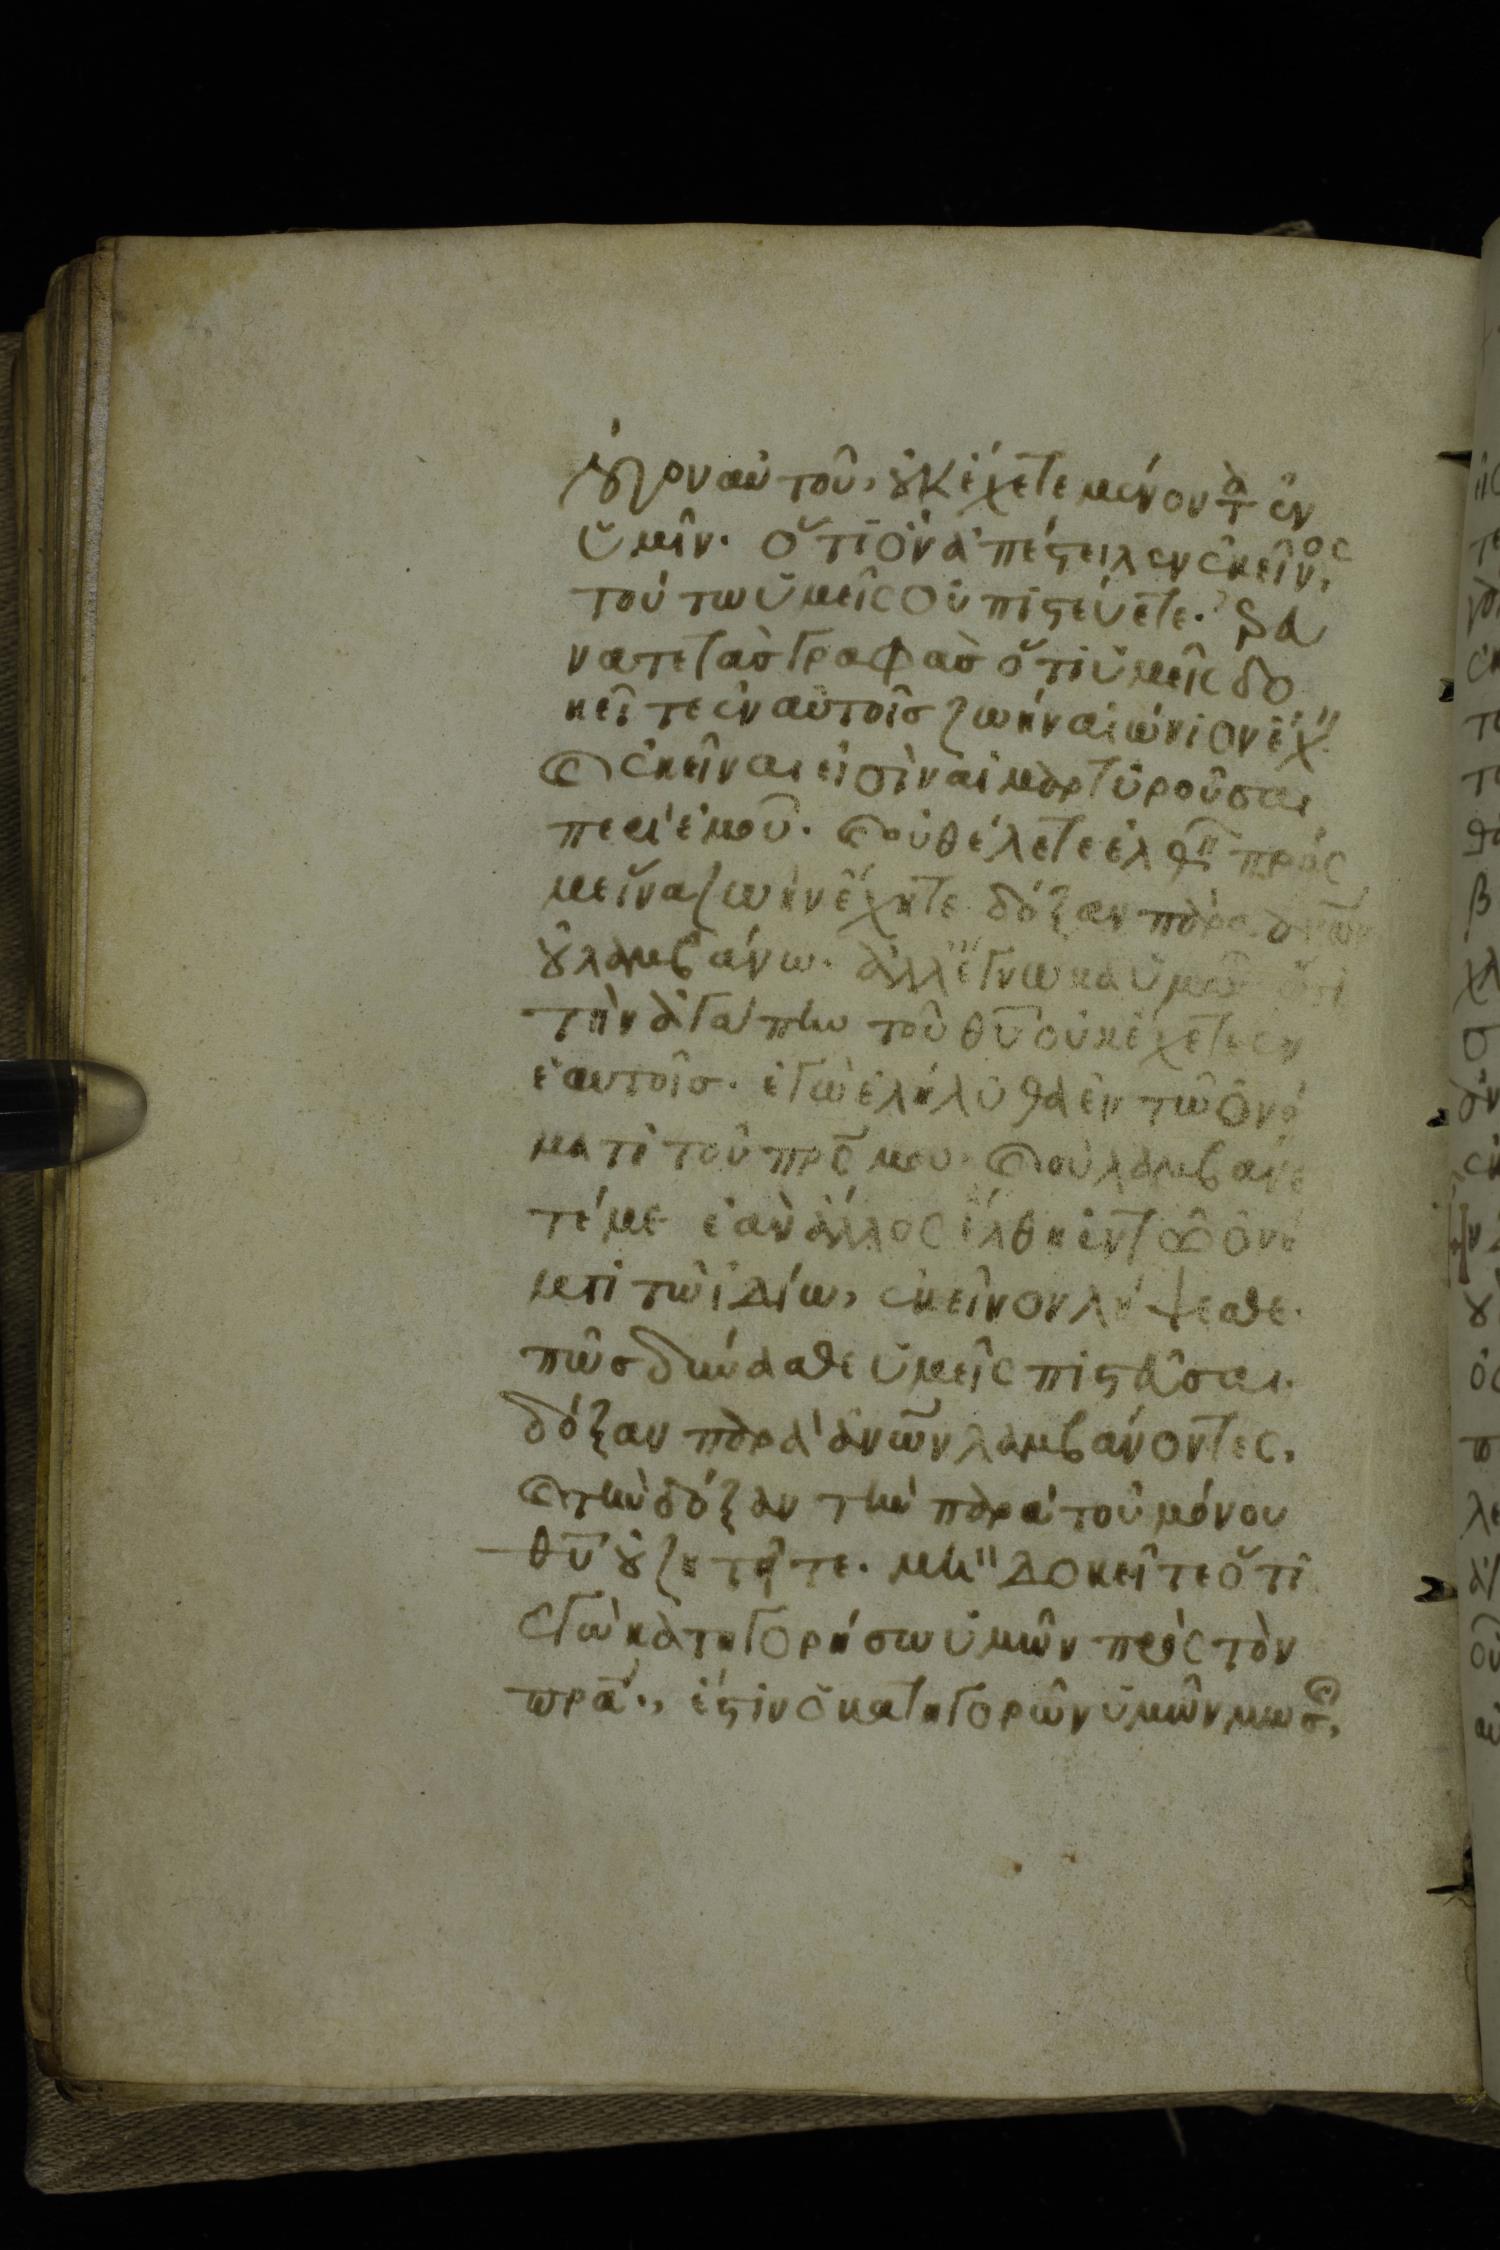 λόγον αὐτοῦ, οὐκ ἔχετε μένοντα ἐν
ὑμῖν. ὅτι ὃν ἀπέστειλεν ἐκεῖνος,
τούτω ὑμεῖς οὐ πιστεύετε. ἐρευ
νατε τὰς γραφὰς ὅτι ὑμεῖς δο
κεῖτε ἐν αὐτοῖς ζωὴν αἰώνιον ἔχ
καὶ ἐκεῖναι εἰσὶν αἱ μαρτυροῦσαι
περὶ ἐμοῦ. καὶ οὐ θέλετε ἐλθεῖν πρός
με ἵνα ζωὴν ἔχητε δόξαν παρὰ ἀνῶν
οὐ λαμβάνω. ἀλλ' ἔγνωκα ὑμᾶς ὅτι
τὴν ἀγάπην τοῦ θῦ οὐκ ἔχετε ἐν
ἑαυτοῖς. ἐγὼ ἐλήλυθα ἐν τῶ ὀνό
ματι τοῦ πρς μου. καὶ οὐ λαμβάνε
τέ με ἐὰν ἄλλος ἔλθη ἐν τῶ ὀνό
μτι τῶ ἰδίω, ἐκεῖνον λήψεσθε.
πῶς δύνασθε ὑμεῖς πιστεῦσαι.
δόξαν παρὰ ἀνων λαμβάνοντες,
καὶ τὴν δόξαν τὴν παρὰ τοῦ μόνου
θῦ οὐ ζητεῖτε. μὴ δοκεῖτε ὅτι
ἐγὼ κατηγορήσω ὑμῶν πρὸς τὸν
πρα., ἔστιν ὁ κατηγορῶν ὑμῶν μωσ,